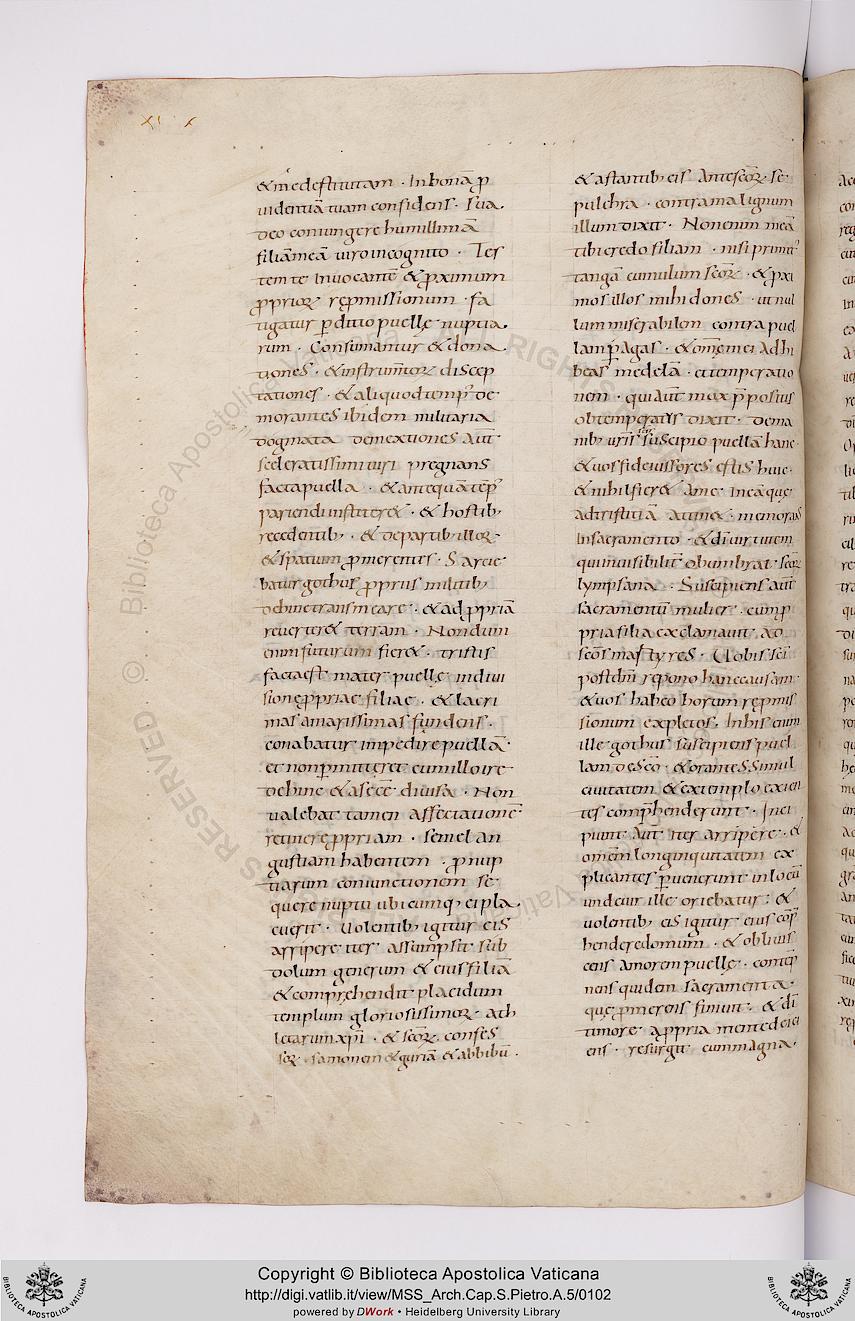 XI
& me destitutam · In bonā ꝓ
uidentiā tuam confidens · sua
deo coniungere humillimā
filiā meā uiro incognito · Tes
tem te Inuocante & ꝓximum
ꝓprioꝝ repmissionum · fa
tigatur ꝑditio puellę nuptia
rum · Consumantur & dona
tiones · & instrumtoꝝ discep
tationes · & aliquod temp' de
morantes ibidem militaria
dogmata demextiones aut
sceleratissimi uiri pregnans
facta puella · & antequā tēp'
pariendi institer& · & hostib;
recedentib; · & de partib; illoꝝ
& spatium ꝓmerentes · Sarcie
batur gothus ꝓpriis militib;
dehinc transmeare · & ad ꝓpriā
reuerter& terram · Nondum
enim futurum fier& · tristis
facta est mater puellę in diui
sione ꝓpriae filiae · & lacri
mas amarissimas fundens ·
conabatur impedire puellā ·
et non ꝑmitteret cum illo ire
dehinc & a se eē diuisa · Non
ualebat tamen affectationē
retinere ꝓpriam · semel an
gustiam habentem · ꝓ nup
tiarum coniunctionem se
quere nuptu ubicumq; ei pla
cuerit · Uolentib; igitur eis
arripere iter assumpsit sub
dolum generum & eius filiā
& comprehendit placidum
templum gloriosissimoꝝ ath
letarum xp̄i · & scōꝝ confes
soꝝ · samonem & guriā & abbibū ·
& astantib; eis Ante scōꝝ se
pulchra · contra malignum
illum dixit · Non enim meā
tibi credo filiam · nisi primit'
tangā cumulum scōꝝ · & ꝓxi
mos illos mihi dones · ut nul
lum miserabilem contra puel
lam ꝑagas · & omēm ei adhi
beas medelā · et temperatio
nem · qui aut mox ꝓpositis
obtemperatus dixit · De ma
nib; ur̄is suscipio puellā hanc
& uos fideiussores estis huic ·
& nihil fier& a me · In eāque
ad tristitiā attin& · memorans
In sacramento · & dī uirtutem
qui inuisibilit' obumbrat scōꝝ
lympsana · Suscipiens aut
sacramentū mulier · cum ꝓ
pria filia exclamauit ad
scōs martyres · Uobis scī
post dm̄ repono hanc causam ·
& uos habeo horum repmis
sionum expletos · In his enim
ille gothus suscipiens puel
lam desēo · & orantes simul
ciuitatem & extemplo exien
tes comp̄henderunt · Inci
piunt aut iter arripere · &
omēm longinquitatem ex
plicantes ꝑuenerunt in locū
unde uir ille oriebatur : &
uolentib; eis igitur eius cōp̄
hendere domum · & obliuis
cens amorem puellę · contēp
nens quidem sacramenta ·
quę ꝓmerens finiuit · & dī
timore a ꝓpria mente deici
ens · resurgit cum magna
Copyright © Biblioteca Apostolica Vaticana
http://digi.vatlib.it/view/MSS_Arch.Cap.S.Pietro.A.5/0102
powered by DWork • Heidelberg University Library